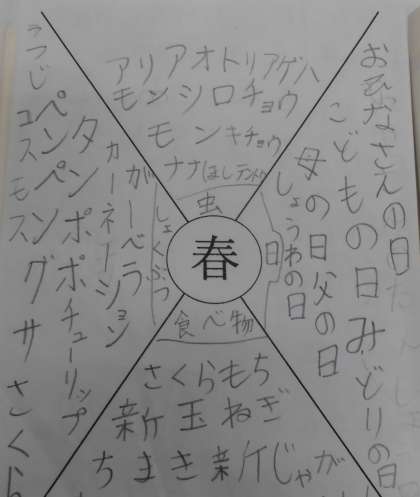 アリ アオトリアゲハ
モンシロチョウ
モンキチョウ
ナナほしテントウ
虫
春
おひなさえの日
こどもの日 みどりの日
母の日 父の日
しょうわの日
日
しょくぶつ
ガーベラ
カーネーション
タンポポ チューリップ
ペンペングサ さくら
コスモス
つつじ
食べ物
さくらもち
新玉ねぎ
ちまき 新じゃが